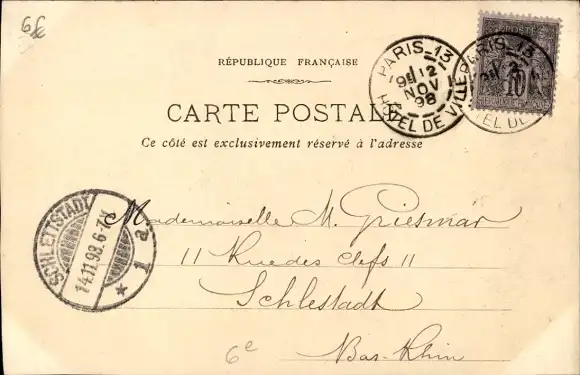 6f
RÉPUBLIQUE FRANÇAISE
CARTE POSTALE
Ce côté est exclusivement réservé à l'adresse
PARIS_13
12
NOV
98
HÔTEL DE VILLE
PARIS_13
POSTES
10
SCHLETTSTADT
14.11.98.6-7N.
* 1 a
Mademoiselle M. Griesmar
11 Rue des Clefs 11
Schlestadt
Bas-Rhin
6e